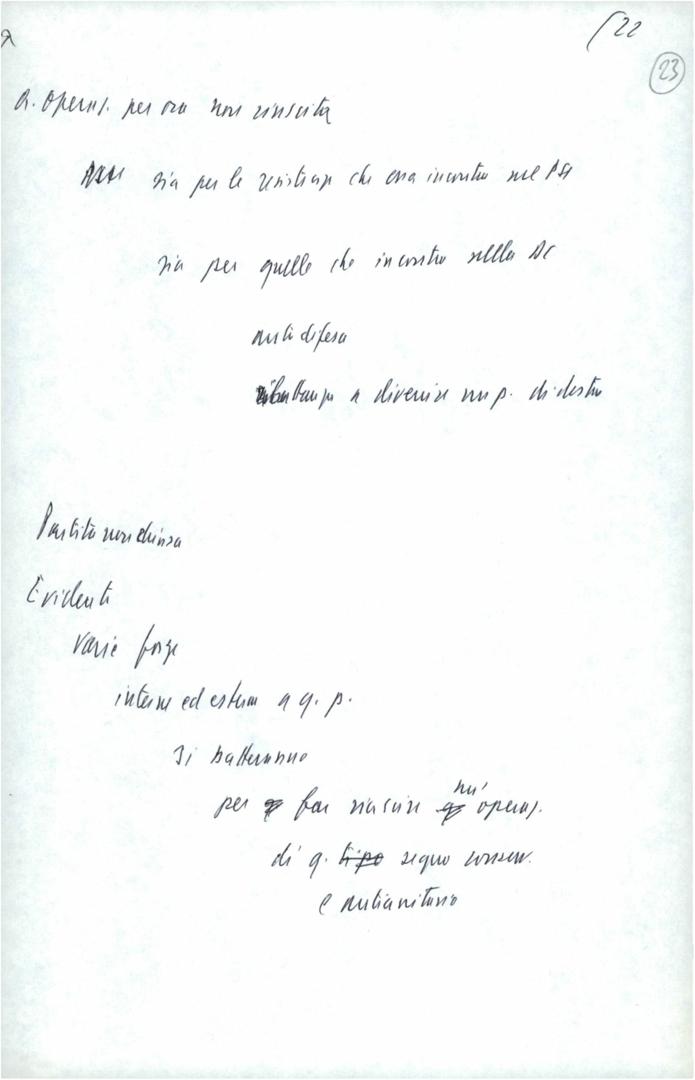 22
23
Q. operaz. per ora non riuscita
sia per le resistenze che essa incontra nel PSI
sia per quelle che incontra nella DC
autodifesa
a divenire un p. di destra
Partita non chiusa
Evidente
varie forze
interne ed esterne a q. p.
si batteranno
per far riuscire un' operaz.
di q. tipo segno conserv.
e antiunitario